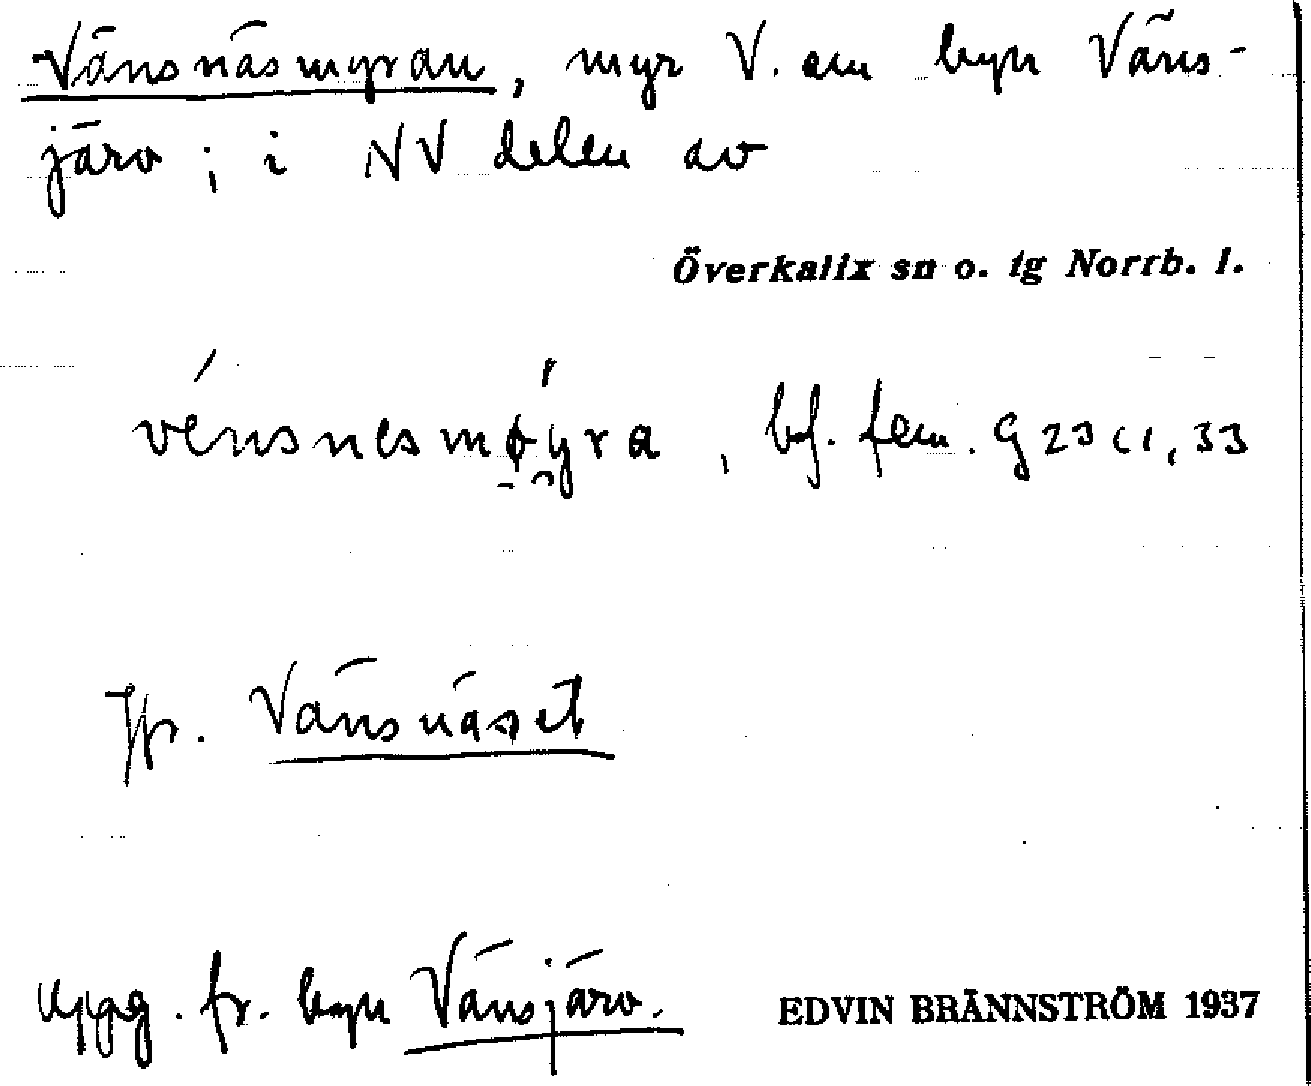 Vänsnäsmyran, myr V. om byn Väns-
järv ; i NV delen av
Överkalix sn o. tg Norrb. l.
vénsnesmøyra, bf. fem. G 23 c1, 33
Jfr. Vänsnäset
uppg. fr. byn Vänsjärv.
EDVIN BRÄNNSTRÖM 1937